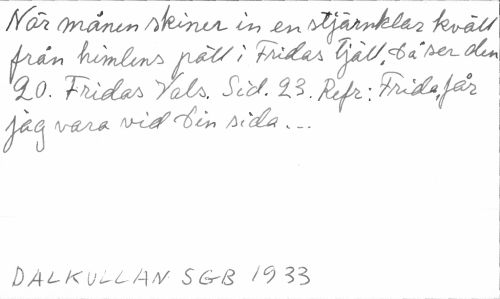 När månen skiner in en stjärnklar kväll
från himlens päll i Fridas tjäll, då ser den
20. Fridas Vals. Sid. 23. Refr: Frida, får
jag vara vid din sida...
DALKULLAN SGB 1933